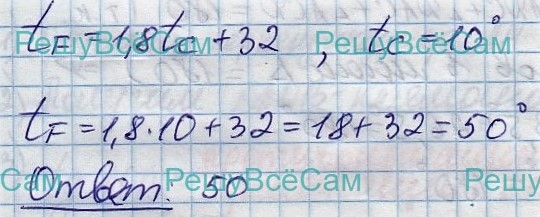 t_F = 1,8 t_C + 32 , t_C = 10°
РешуВсёСам РешуВсёСам
t_F = 1,8·10 + 32 = 18 + 32 = 50°
Ответ: 50
Сам РешуВсёСам Решу